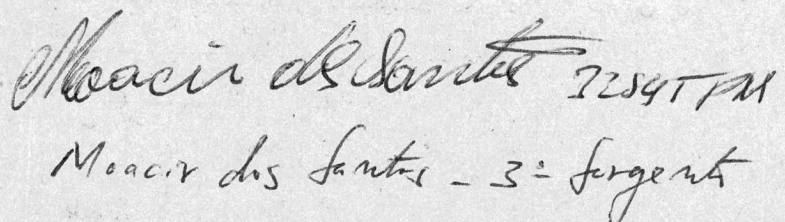 Moacir dos Santos 3º Sgt PM
Moacir dos Santos - 3º Sargento